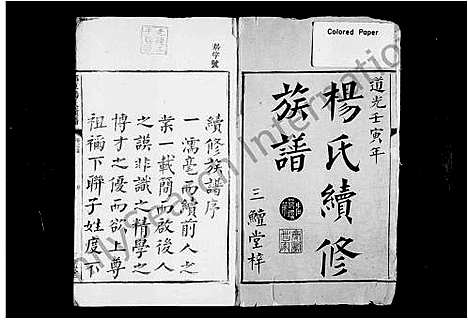 Colored Paper
道光壬寅年
楊氏續修
族譜
三鱣堂梓
號
續修族譜序
一濡毫而續前人之
業一載簡而啟後人
之誤非識之精學之
博才之優而欲上尊
祖禰下聯子姓度下
FamilySearch International